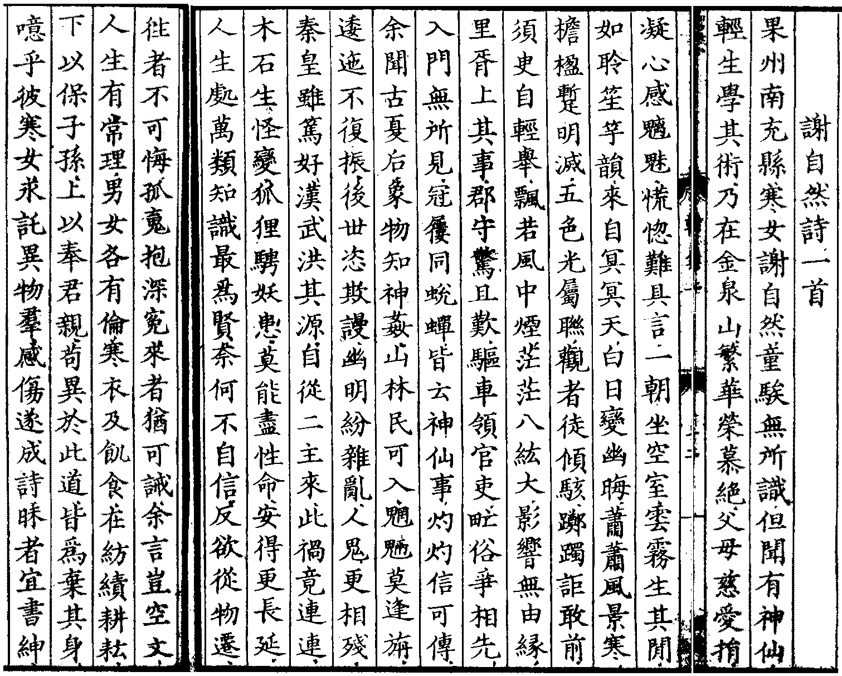 謝自然詩一首
果州南充縣寒女謝自然童騃無所識但聞有神仙
輕生學其術乃在金泉山繁華榮慕絶父母慈愛捐
凝心感魑魅慌惚難具言一朝坐空室雲霧生其間
如聆笙竽韻來自冥冥天白日變幽晦蕭蕭風景寒
檐楹蹔明滅五色光屬聯觀者徒傾駭躑躅詎敢前
須臾自輕舉飄若風中煙茫茫八紘大影響無由緣
里胥上其事郡守驚且歎驅車領官吏甿俗爭相先
入門無所見冠屨同蛻蟬皆云神仙事灼灼信可傳
余聞古夏后象物知神姦山林民可入魍魎莫逢旃
逶迤不復振後世恣欺謾幽明紛雜亂人鬼更相殘
秦皇雖篤好漢武洪其源自從二主來此禍竟連連
木石生怪變狐狸騁妖患莫能盡性命安得更長延
人生處萬類知識最爲賢柰何不自信反欲從物遷
徃者不可悔孤魂抱深寃來者猶可誡余言豈空文
人生有常理男女各有倫寒衣及飢食在紡績耕耘
下以保子孫上以奉君親苟異於此道皆爲棄其身
噫乎彼寒女永託異物羣感傷遂成詩昧者宜書紳